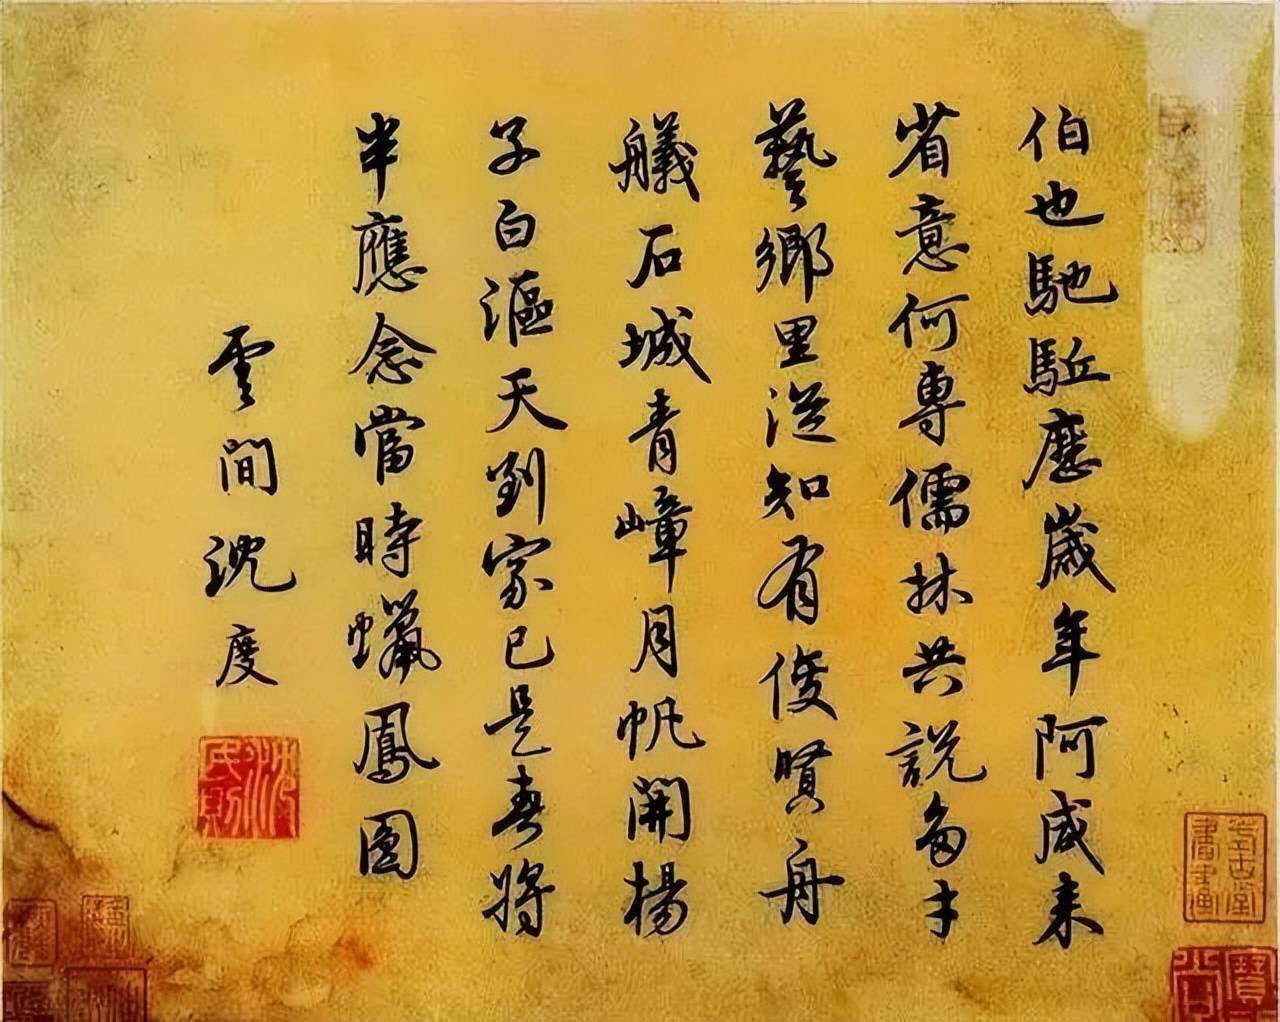 伯也馳駈歷歲年阿咸来
省意何専儒林共説多才
藝鄉里從知有俊賢舟
艤石城青嶂月帆開楊
子白漚天到家已是春將
半應念當時蠟鳳圓
雲間沈度
沈民則